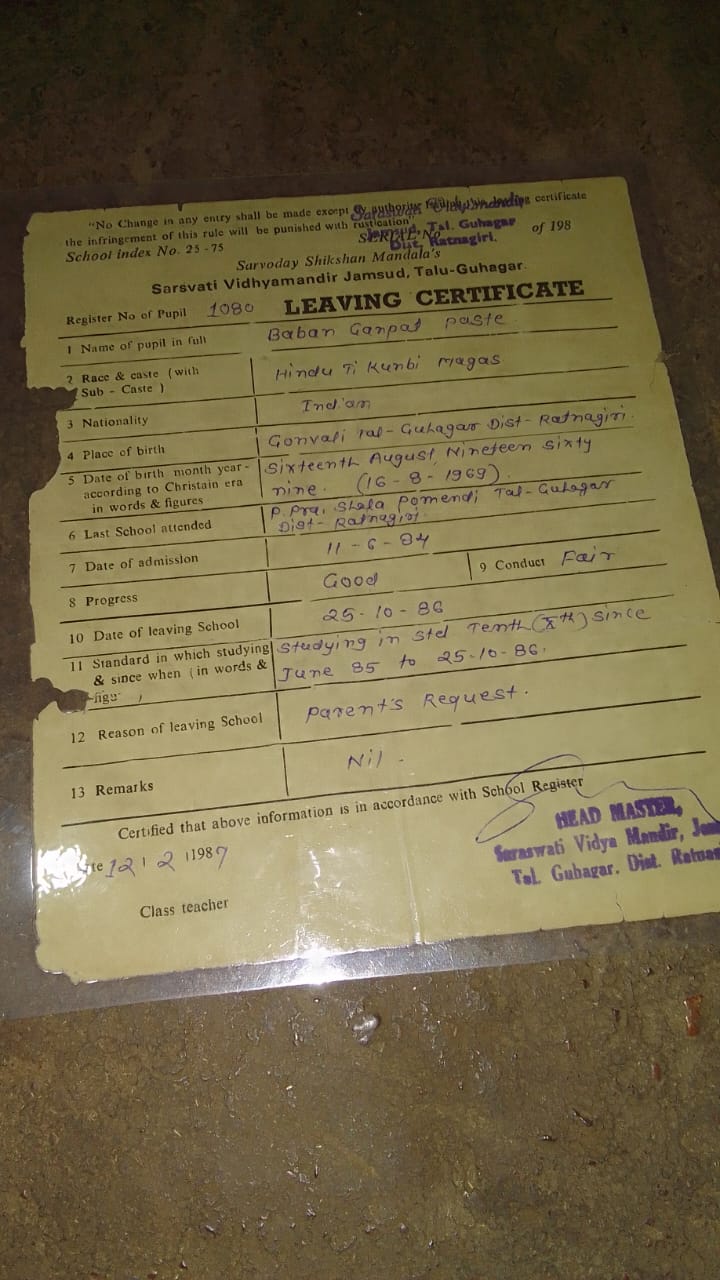 "No Change in any entry shall be made except by authority issuing certificate
the infringement of this rule will be punished with rustication"
School index No. 25-75 SERIAL No. of 198
Jamsud, Tal. Guhagar
Dist. Ratnagiri.
Sarvoday Shikshan Mandala's
Sarsvati Vidhyamandir Jamsud, Talu-Guhagar.
Register No of Pupil 1080 LEAVING CERTIFICATE
1 Name of pupil in full Baban Ganpat paste
2 Race & caste (with Sub - Caste) Hindu Ti Kunbi magas
3 Nationality Indian
4 Place of birth Gonvali Tal-Guhagar Dist-Ratnagiri.
5 Date of birth month year- Sixteenth August Nineteen sixty
according to Christain era nine. (16-8-1969).
in words & figures
6 Last School attended P. Pra. Shala Pomendi Tal-Guhagar
Dist-Ratnagiri.
7 Date of admission 11-6-84
8 Progress Good 9 Conduct Fair
10 Date of leaving School 25-10-86
11 Standard in which studying Studying in std Tenth (Xth) since
& since when (in words & June 85 to 25-10-86.
figu )
12 Reason of leaving School Parent's Request.
13 Remarks Nil.
Certified that above information is in accordance with School Register
te 12 2 1987
HEAD MASTER,
Saraswati Vidya Mandir,
Tal. Guhagar. Dist.
Class teacher